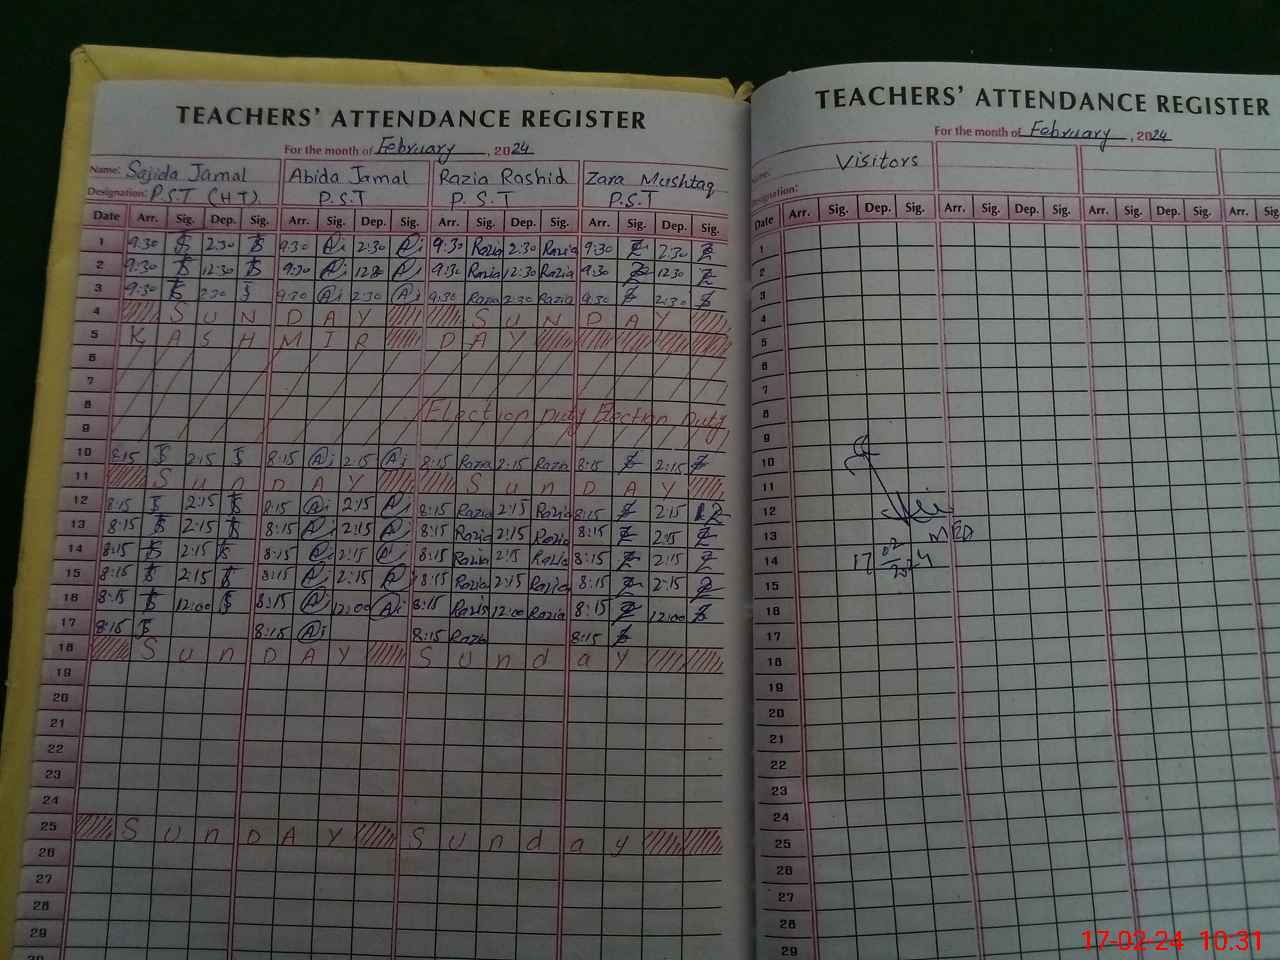 TEACHERS' ATTENDANCE REGISTER
For the month of February, 2024
Name: Sajida Jamal Abida Jamal Razia Rashid Zara Mushtaq
Designation: P.S.T (H.T). P.S.T P.S.T P.S.T
Date Arr. Sig. Dep. Sig. Arr. Sig. Dep. Sig. Arr. Sig. Dep. Sig. Arr. Sig. Dep. Sig.
1 9:30 2:30 9:30 2:30 9:30 Razia 2:30 Razia 9:30 2:30
2 9:30 12:30 9:30 9:30 Razia 12:30 Razia 9:30 12:30
3 9:30 2:30 9:30 2:30 9:30 Razia 2:30 Razia 9:30 2:30
4 SUN DAY SUN DAY
5 KASHMIR DAY
6
7
8 Election Duty Election Duty
9
10 8:15 2:15 8:15 2:15 8:15 Razia 2:15 Razia 8:15 2:15
11 Sun DAY Sun DAY
12 8:15 2:15 8:15 2:15 8:15 Razia 2:15 Razia 8:15 2:15
13 8:15 2:15 8:15 2:15 8:15 Razia 2:15 Razia 8:15 2:15
14 8:15 2:15 8:15 2:15 8:15 Razia 2:15 Razia 8:15 2:15
15 8:15 2:15 8:15 2:15 8:15 Razia 2:15 Razia 8:15 2:15
16 8:15 12:00 8:15 12:00 8:15 Razia 12:00 Razia 8:15 12:00
17 8:15 8:15 8:15 Razia 8:15
18 Sun DAY Sunday
19
20
21
22
23
24
25 SunDAY Sunday
26
27
28
29
30
TEACHERS' ATTENDANCE REGISTER
For the month of February, 2024
Name: Visitors
Designation:
Date Arr. Sig. Dep. Sig. Arr. Sig. Dep. Sig. Arr. Sig. Dep. Sig. Arr. Sig.
1
2
3
4
5
6
7
8
9
10
11
12
13
14
15
16
17
18
19
20
21
22
23
24
25
26
27
28
29
17-02-24 10:31